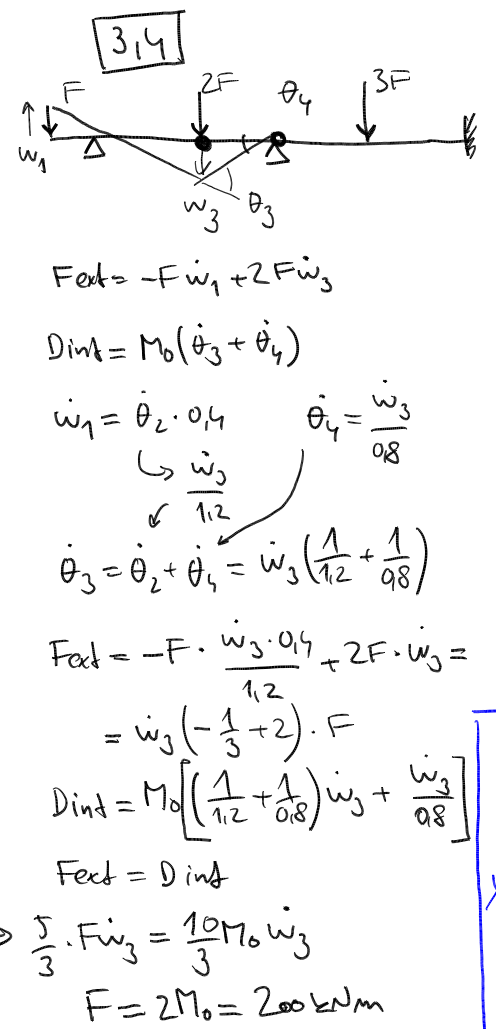 3,4
F 2F θ₄ 3F
w₁
w₃ θ₃
Fext = -Fẇ₁ + 2Fẇ₃
Dint = M₀(θ̇₃ + θ̇₄)
ẇ₁ = θ̇₂ · 0,4 θ̇₄ = ẇ₃/0,8
↳ ẇ₃/1,2
θ̇₃ = θ̇₂ + θ̇₄ = ẇ₃(1/1,2 + 1/0,8)
Fext = -F · ẇ₃·0,4/1,2 + 2F · ẇ₃ =
= ẇ₃(-1/3 + 2) · F
Dint = M₀[(1/1,2 + 1/0,8)ẇ₃ + ẇ₃/0,8]
Fext = Dint
5/3 · Fẇ₃ = 10/3 M₀ ẇ₃
F = 2M₀ = 200 kNm